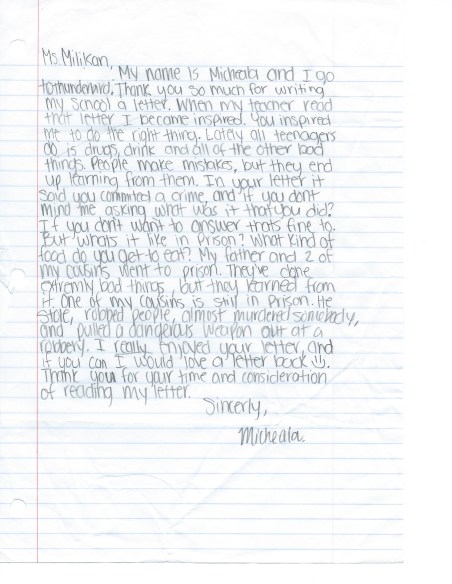 Ms. Milikan,
My name is Micheala and I go
to thunderbird. Thank you so much for writing
my School a letter. When my teacher read
that letter I became inspired. You inspired
me to do the right thing. Lately all teenagers
do is drugs, drink and all of the other bad
things. People make mistakes, but they end
up learning from them. In your letter it
said you commited a crime, and if you dont
mind me asking what was it that you did?
If you don't want to answer thats fine to.
But whats it like in Prison? What kind of
food do you get to eat? My father and 2 of
my cousins went to prison. They've done
extremly bad things, but they learned from
it. One of my cousins is still in Prison. He
stole, robbed people, almost murdered somebody,
and pulled a dangerous weapon out at a
robbery. I really enjoyed your letter, and
if you can I would love a letter back :).
Thank you for your time and consideration
of reading my letter.
Sincerly,
Micheala